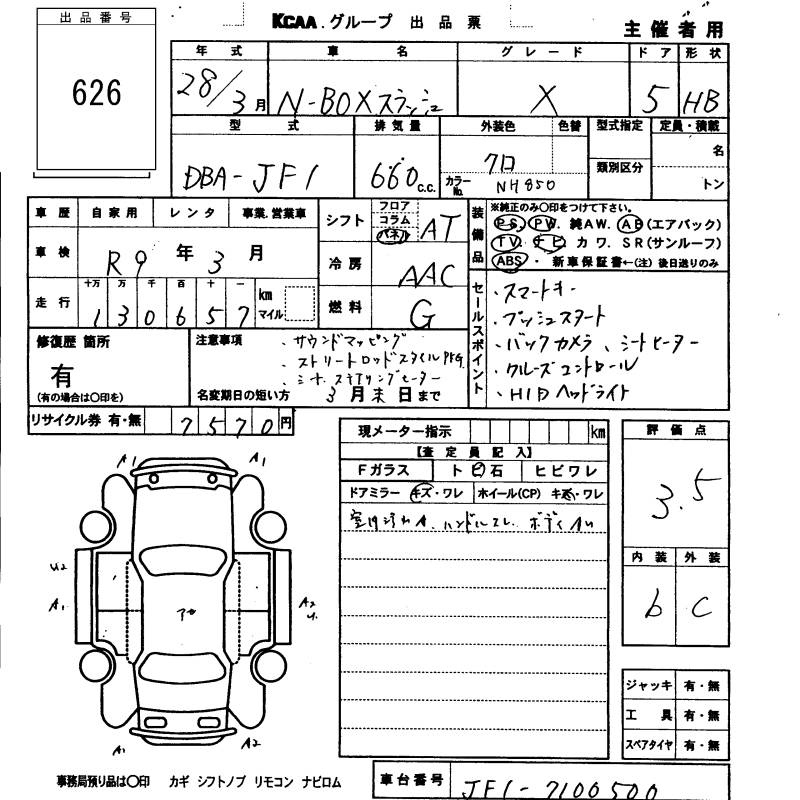 出品番号
626
KCAA.グループ 出品票
主催者用
年式 車名 グレード ドア 形状
28/3月 N-BOXスラッシュ X 5 HB
型式 排気量 外装色 色替 型式指定 定員・積載
DBA-JF1 660c.c. クロ 類別区分 名
カラーNo. NH850 トン
車歴 自家用 レンタ 事業.営業車
車検 R9年3月
走行 十万 万 千 百 十 一
130657 km マイル
シフト フロア コラム パネル AT
冷房 AAC
燃料 G
装備品 ※純正のみ○印をつけて下さい。
PS. PW. 純AW. AB(エアバック)
TV. ナビ カワ. SR(サンルーフ)
ABS・新車保証書←(注)後日送りのみ
セールスポイント
・スマートキー
・プッシュスタート
・バックカメラ、シートヒーター
・クルーズコントロール
・HIDヘッドライト
修復歴 箇所
有
(有の場合は○印を)
注意事項
・サウンドマッピング
・ストリートロッドスタイルPKG
名変期日の短い方 3月末日まで
リサイクル券 有・無 7570円
現メーター指示 km
【査定員記入】
Fガラス ト ビ 石 ヒビワレ
ドアミラー キズ・ワレ ホイール(CP) キズ・ワレ
ハンドルスレ ボディAU
評価点
3.5
内装 外装
b C
ジャッキ 有・無
工具 有・無
スペアタイヤ 有・無
A1 A1
U2
A1 A2
A1 A2
事務局預り品は○印 カギ シフトノブ リモコン ナビロム
車台番号 JF1-7100500